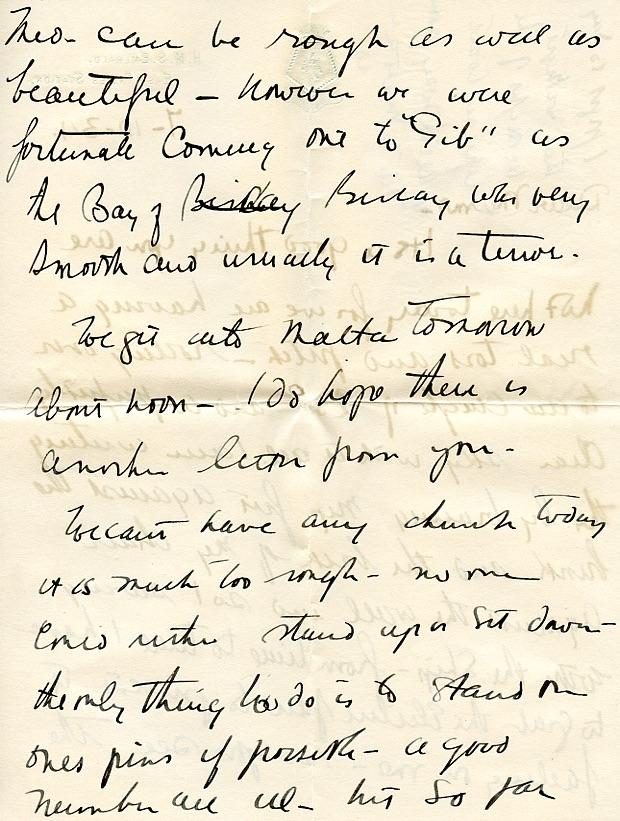 Med- can be rough as well as
beautiful - However we were
fortunate Coming out to "Gib" as
the Bay of Biskay Biscay was very
smooth and usually it is a terror.
We get into Malta Tomorrow
about noon - I do hope there is
another letter from you -
We cant have any church today
it is much too rough - no one
could either stand up or sit down -
the only thing to do is to stand on
ones pins if possible - a good
number are ill - but so far